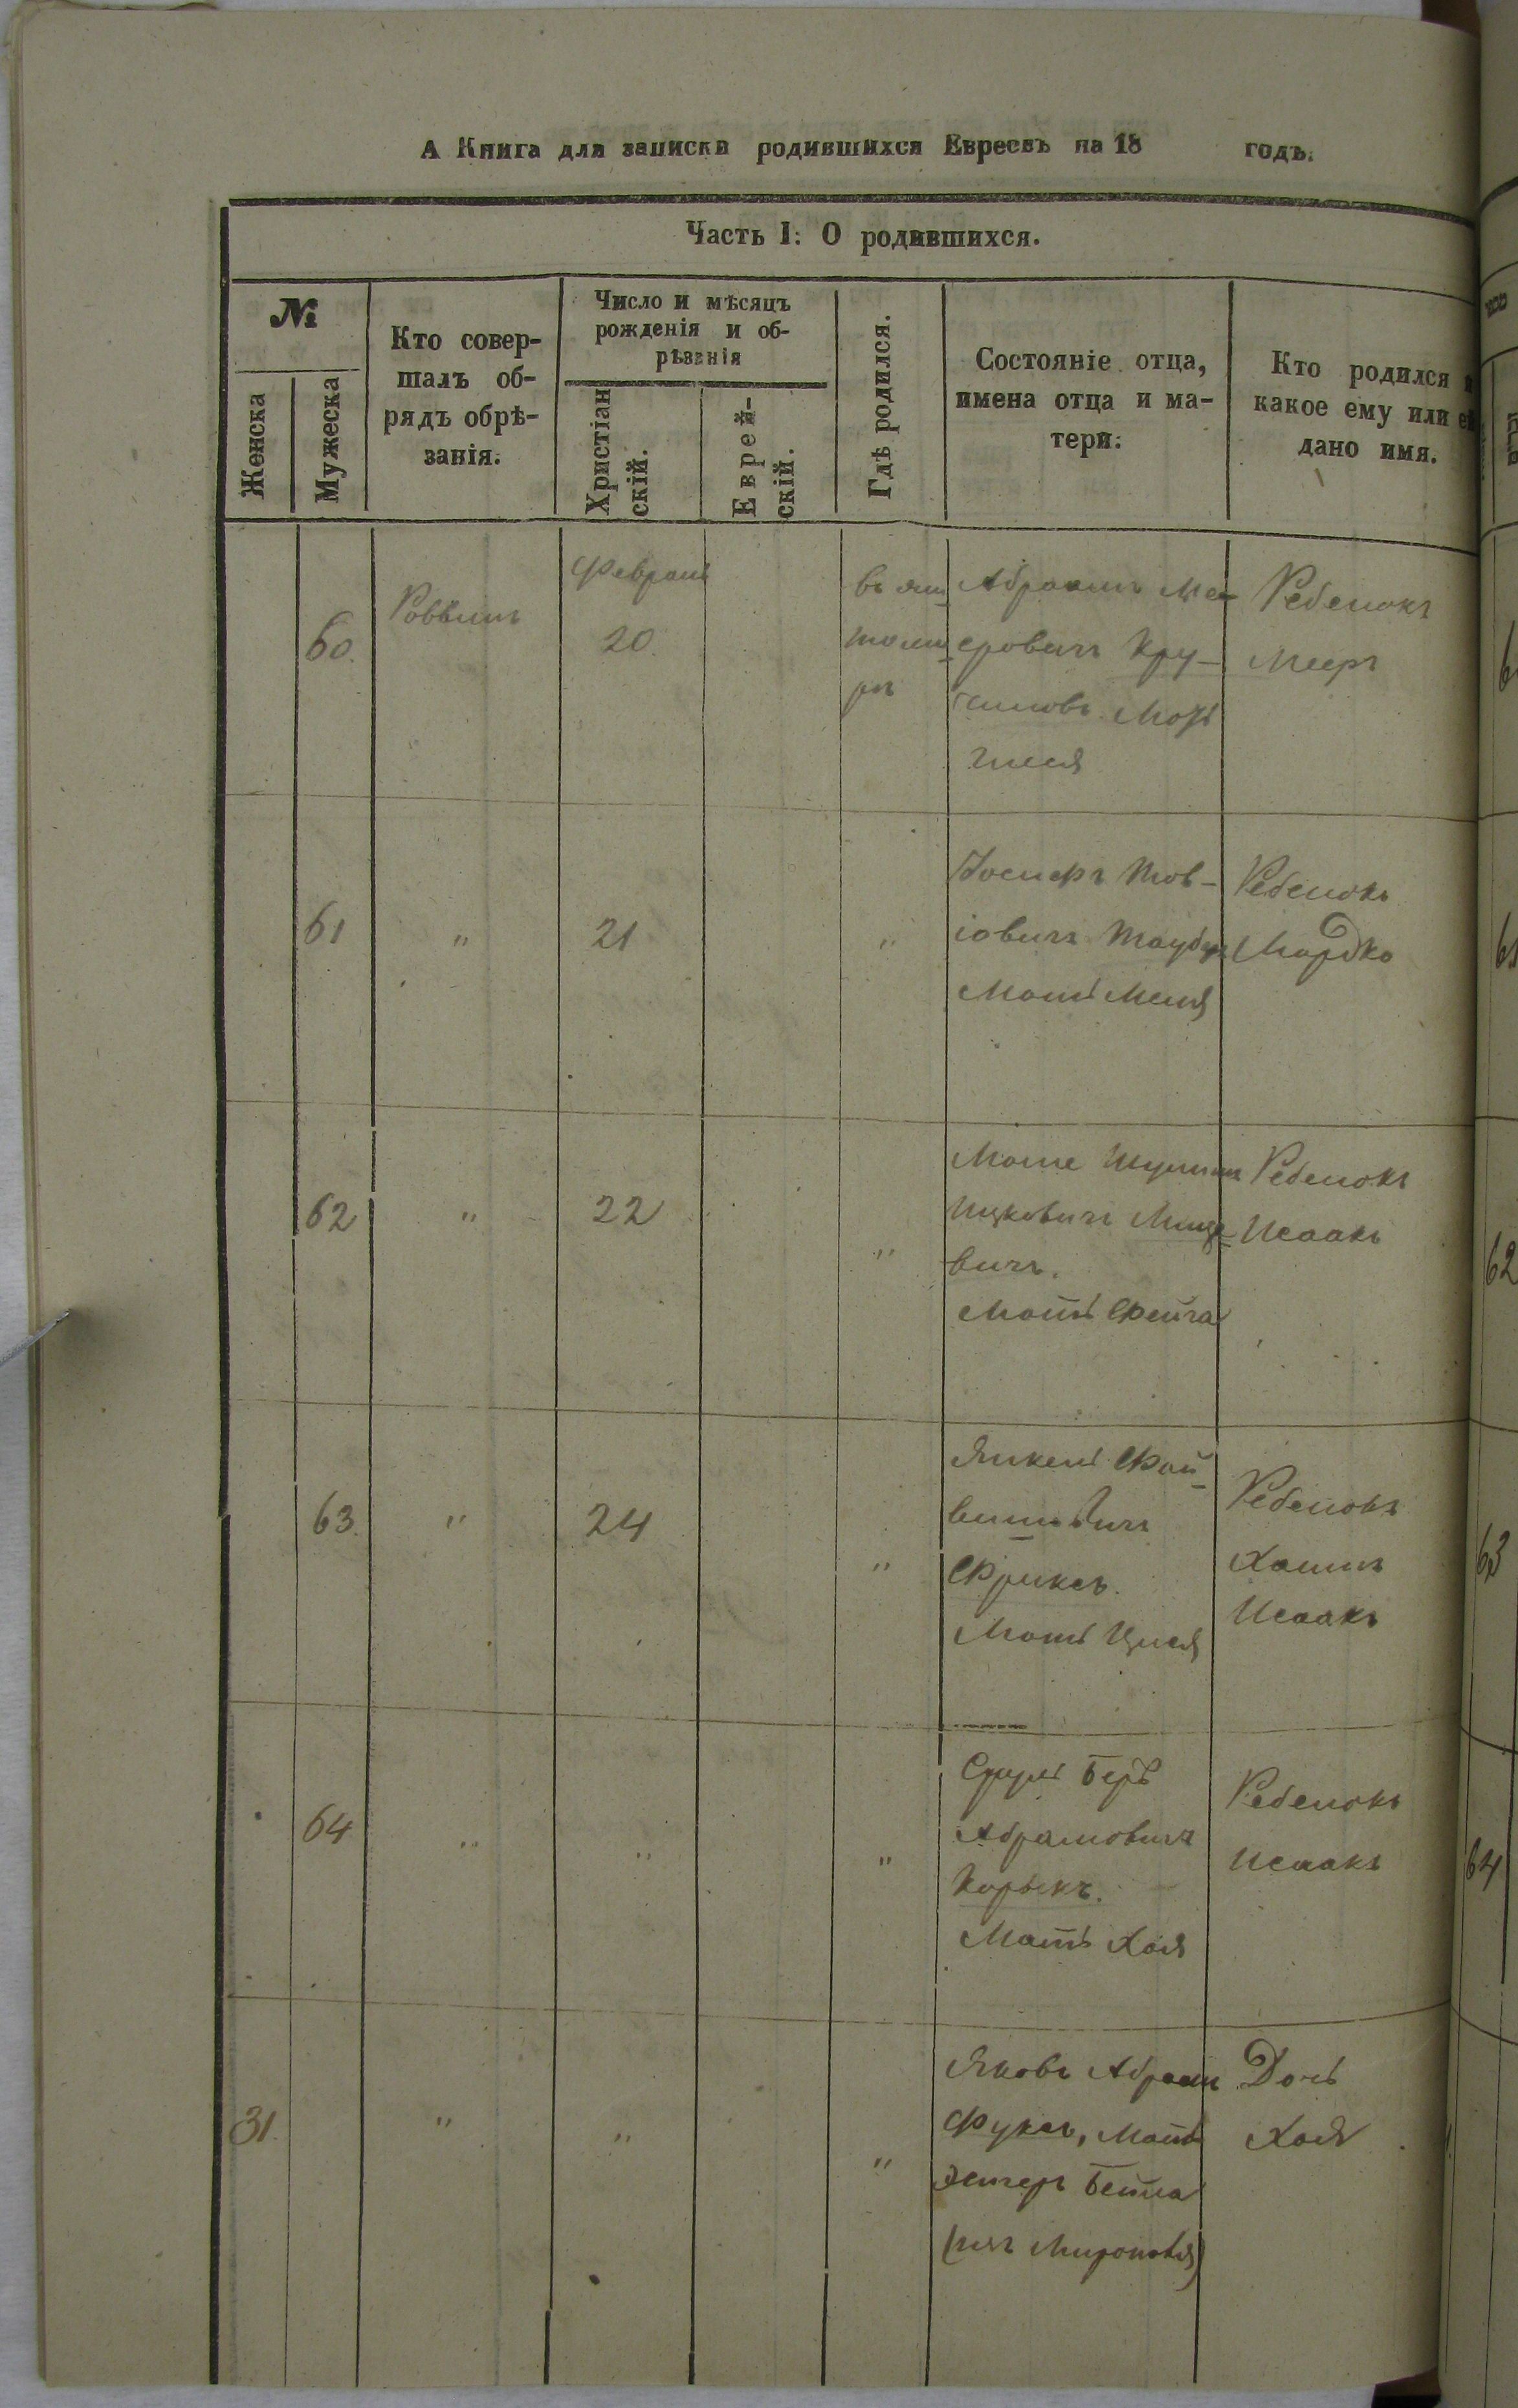 А Книга для записки родившихся Евреевъ на 18 годъ.
Часть I: О родившихся.
№
Женска
Мужеска
Кто совер-
шалъ об-
рядъ обрѣ-
занія.
Число и мѣсяцъ
рожденія и об-
рѣзанія
Христіан
скій.
Еврей-
скій.
Гдѣ родился.
Состояніе отца,
имена отца и ма-
тери.
Кто родился и
какое ему или ей
дано имя.
60.
Раввинъ
Февраль
20.
въ Жи
томи
рѣ
Абрамъ Ме-
еровичъ Кру-
Мать
Ребенокъ
Мееръ
61
"
21
"
Іосифъ Тов-
іовичъ
Мать Меня
Ребенокъ
Мордко
62
"
22
"
Моше Шулимъ
Ицковичъ
вичъ.
Мать Фейга
Ребенокъ
Исаакъ
63.
"
24
"
Янкель Фай-
вишовичъ
Фриксъ.
Мать Цися
Ребенокъ
Хаимъ
Исаакъ
64
"
"
"
Сруль Беръ
Абрамовичъ
Корыкъ.
Мать Хая
Ребенокъ
Исаакъ
31.
"
"
"
Яковъ Абрам
Фуксъ, Мать
Эстеръ Бейла
(изъ Мирополя)
Дочь
Хая
61
62
63
64